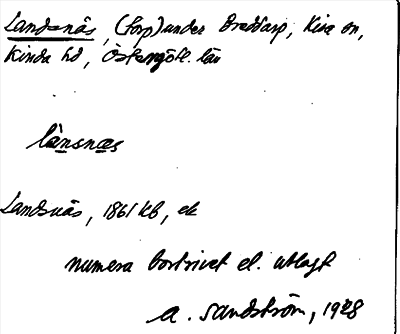 Landsnäs, (torp) under Breddarp, Kisa sn,
Kinda hd, Östergötl. län
lànsnæs
Landsnäs, 1861 kb, ek
numera bortrivet el. utlagt
A. Sandström, 1928